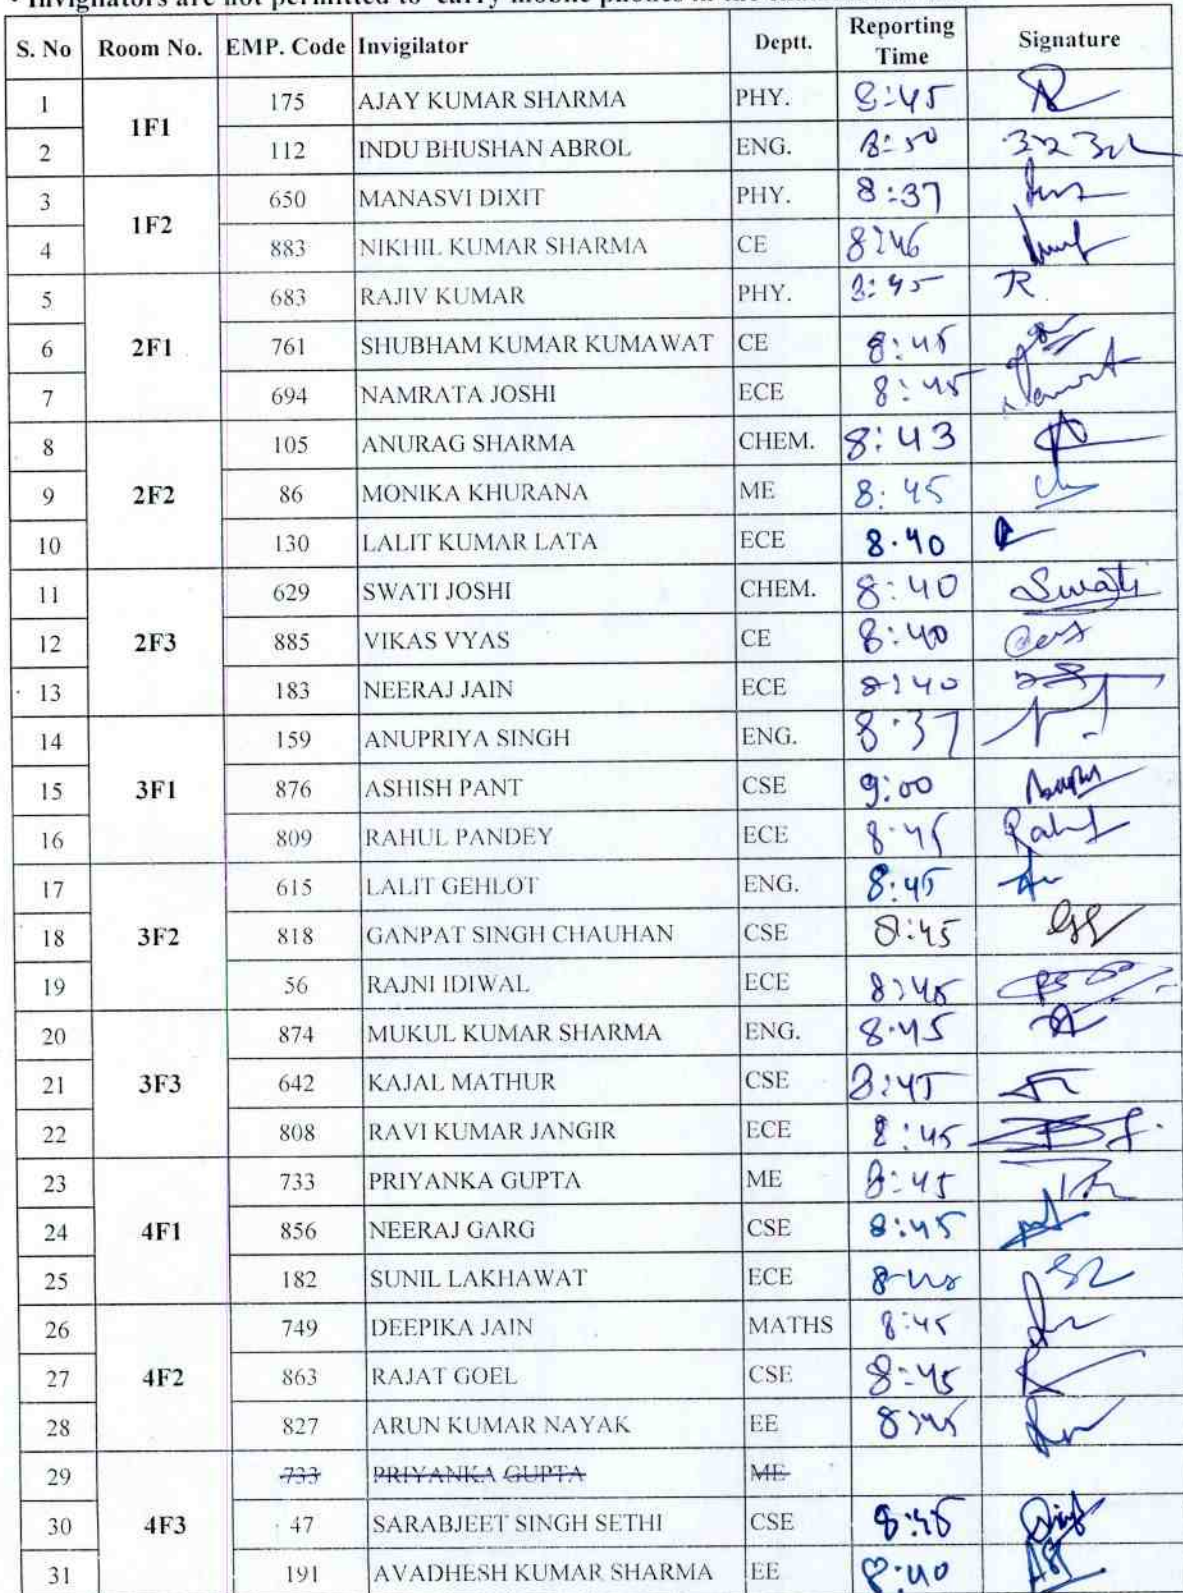 Invigilators are not permitted to carry mobile phones in the
S. No Room No. EMP. Code Invigilator Deptt. Reporting Time Signature
1 1F1 175 AJAY KUMAR SHARMA PHY. 8:45
2 112 INDU BHUSHAN ABROL ENG. 8:50
3 1F2 650 MANASVI DIXIT PHY. 8:37
4 883 NIKHIL KUMAR SHARMA CE 8:46
5 2F1 683 RAJIV KUMAR PHY. 8:45 R
6 761 SHUBHAM KUMAR KUMAWAT CE 8:45
7 694 NAMRATA JOSHI ECE 8:45
8 2F2 105 ANURAG SHARMA CHEM. 8:43
9 86 MONIKA KHURANA ME 8:45
10 130 LALIT KUMAR LATA ECE 8.40
11 2F3 629 SWATI JOSHI CHEM. 8:40 Swati
12 885 VIKAS VYAS CE 8:40
13 183 NEERAJ JAIN ECE 8:40
14 3F1 159 ANUPRIYA SINGH ENG. 8:37
15 876 ASHISH PANT CSE 9:00
16 809 RAHUL PANDEY ECE 8:45 Rahul
17 3F2 615 LALIT GEHLOT ENG. 8:45
18 818 GANPAT SINGH CHAUHAN CSE 8:45
19 56 RAJNI IDIWAL ECE 8:45
20 3F3 874 MUKUL KUMAR SHARMA ENG. 8:45
21 642 KAJAL MATHUR CSE 8:45
22 808 RAVI KUMAR JANGIR ECE 8:45
23 4F1 733 PRIYANKA GUPTA ME 8:45
24 856 NEERAJ GARG CSE 8:45
25 182 SUNIL LAKHAWAT ECE
26 4F2 749 DEEPIKA JAIN MATHS 8:45
27 863 RAJAT GOEL CSE 8:45
28 827 ARUN KUMAR NAYAK EE 8:45
29 4F3 733 PRIYANKA GUPTA ME
30 47 SARABJEET SINGH SETHI CSE
31 191 AVADHESH KUMAR SHARMA EE 8:40